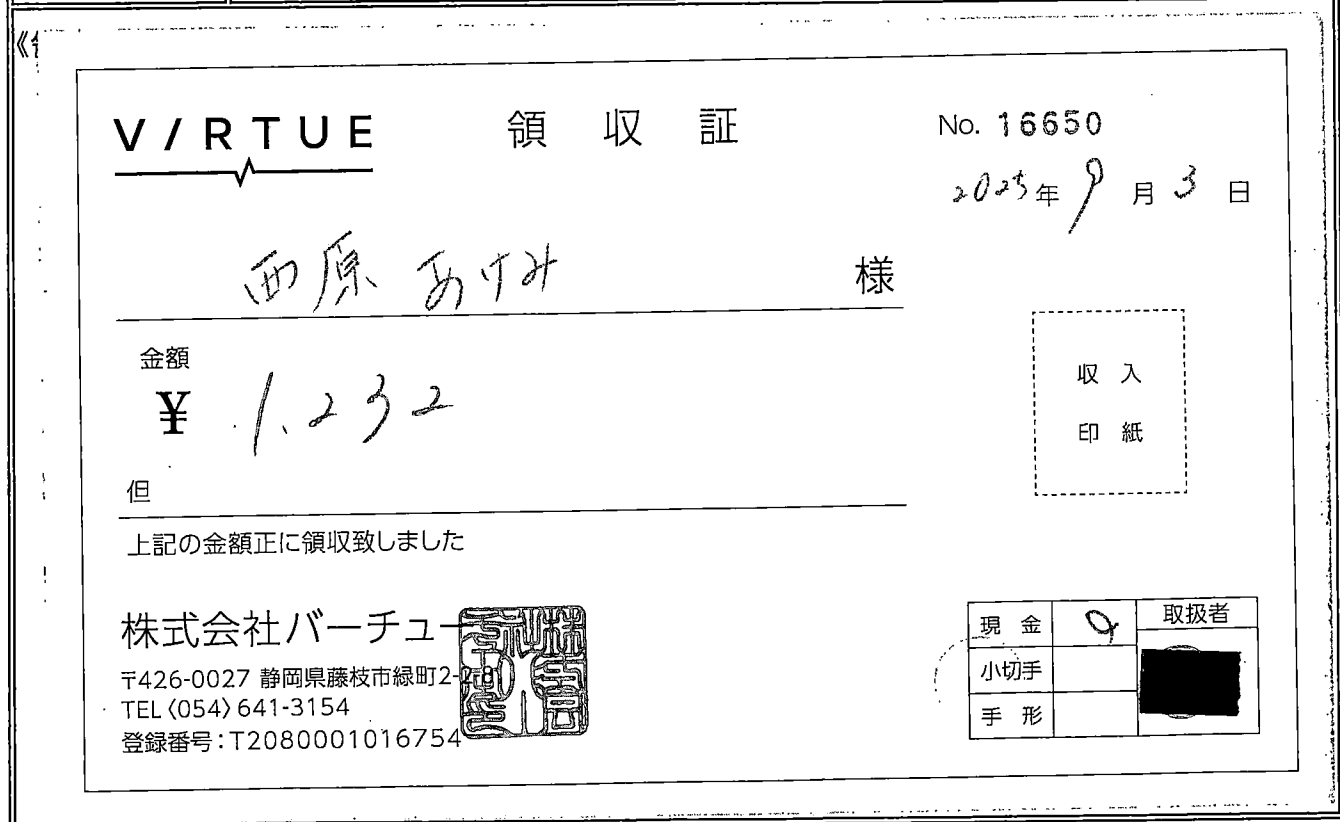 V/RTUE 領収証 No. 16650
2025年 9月 3日
西原 あけみ 様
金額
¥ 1,232
収入
印紙
但
上記の金額正に領収致しました
株式会社バーチュー
〒426-0027 静岡県藤枝市緑町2-2-8
TEL〈054〉641-3154
登録番号:T2080001016754
現金 取扱者
小切手
手形